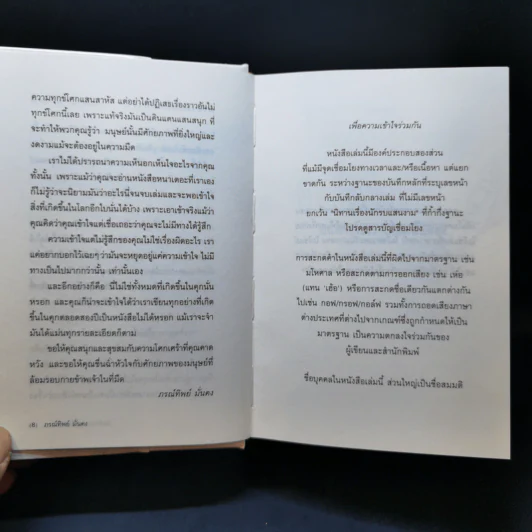 ความทุกข์โศกแสนสาหัส แต่อย่าได้ปฏิเสธเรื่องราวอันไม่
ทุกข์โศกนี้เลย เพราะแท้จริงมันเป็นดินแดนแสนสนุก ที่
จะทำให้พวกคุณรู้ว่า มนุษย์นั้นมีศักยภาพที่ยิ่งใหญ่และ
งดงามแม้จะต้องอยู่ในความมืด
เราไม่ได้ปรารถนาความเห็นอกเห็นใจอะไรจากคุณ
ทั้งนั้น เพราะแม้ว่าคุณจะอ่านหนังสือหนาเตอะที่เราเอง
ก็ไม่รู้ว่าจะนิยามมันว่าอะไรนี่จนจบเล่มและจะพอเข้าใจ
สิ่งที่เกิดขึ้นในโลกอีกใบนั้นได้บ้าง เพราะเอาเข้าจริงแม้ว่า
คุณคิดว่าคุณเข้าใจแต่เชื่อเถอะว่าคุณจะไม่มีทางได้รู้สึก
ความเข้าใจแต่ไม่รู้สึกของคุณไม่ใช่เรื่องผิดอะไร เรา
แค่อยากบอกไว้เฉยๆ ว่ามันจะหยุดอยู่แค่ความเข้าใจ ไม่มี
ทางเป็นไปมากกว่านั้น เท่านั้นเอง
และอีกอย่างก็คือ นี่ไม่ใช่ทั้งหมดที่เกิดขึ้นในคุกนั่น
หรอก และคุณก็น่าจะเข้าใจได้ว่าเราเขียนทุกอย่างที่เกิด
ขึ้นในคุกตลอดสองปีเป็นหนังสือไม่ได้หรอก แม้เราจะจำ
มันได้แม่นทุกรายละเอียดก็ตาม
ขอให้คุณสนุกและสุขสมกับความโศกเศร้าที่คุณคาด
หวัง และขอให้คุณชื่นฉ่ำหัวใจกับศักยภาพของมนุษย์ที่
ล้อมรอบกายข้าพเจ้าในที่มืด
ภรณ์ทิพย์ มั่นคง
(8) ภรณ์ทิพย์ มั่นคง
เพื่อความเข้าใจร่วมกัน
หนังสือเล่มนี้มีองค์ประกอบสองส่วน
ที่แม้มีจุดเชื่อมโยงทางเวลาและ/หรือเนื้อหา แต่แยก
ขาดกัน ระหว่างฐานะของบันทึกหลักที่ระบุเลขหน้า
กับบันทึกลับกลางเล่ม ที่ไม่มีเลขหน้า
ยกเว้น "นิทานเรื่องนักรบแสนงาม" ที่ก้ำกึ่งฐานะ
โปรดดูสารบัญเชื่อมโยง
การสะกดคำในหนังสือเล่มนี้ที่ผิดไปจากมาตรฐาน เช่น
มโหตาล หรือสะกดตามการออกเสียง เช่น เห้อ
(แทน 'เฮ้อ') หรือการสะกดชื่อเดียวกันแตกต่างกัน
ไปเช่น กอฟ/กรอฟ/กอล์ฟ รวมทั้งการถอดเสียงภาษา
ต่างประเทศที่ต่างไปจากเกณฑ์ซึ่งถูกกำหนดให้เป็น
มาตรฐาน เป็นความตกลงใจร่วมกันของ
ผู้เขียนและสำนักพิมพ์
ชื่อบุคคลในหนังสือเล่มนี้ ส่วนใหญ่เป็นชื่อสมมติ